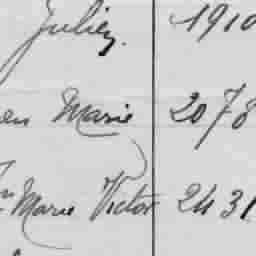 Julien. 1910
en Marie 2078
Marie Victor 2431